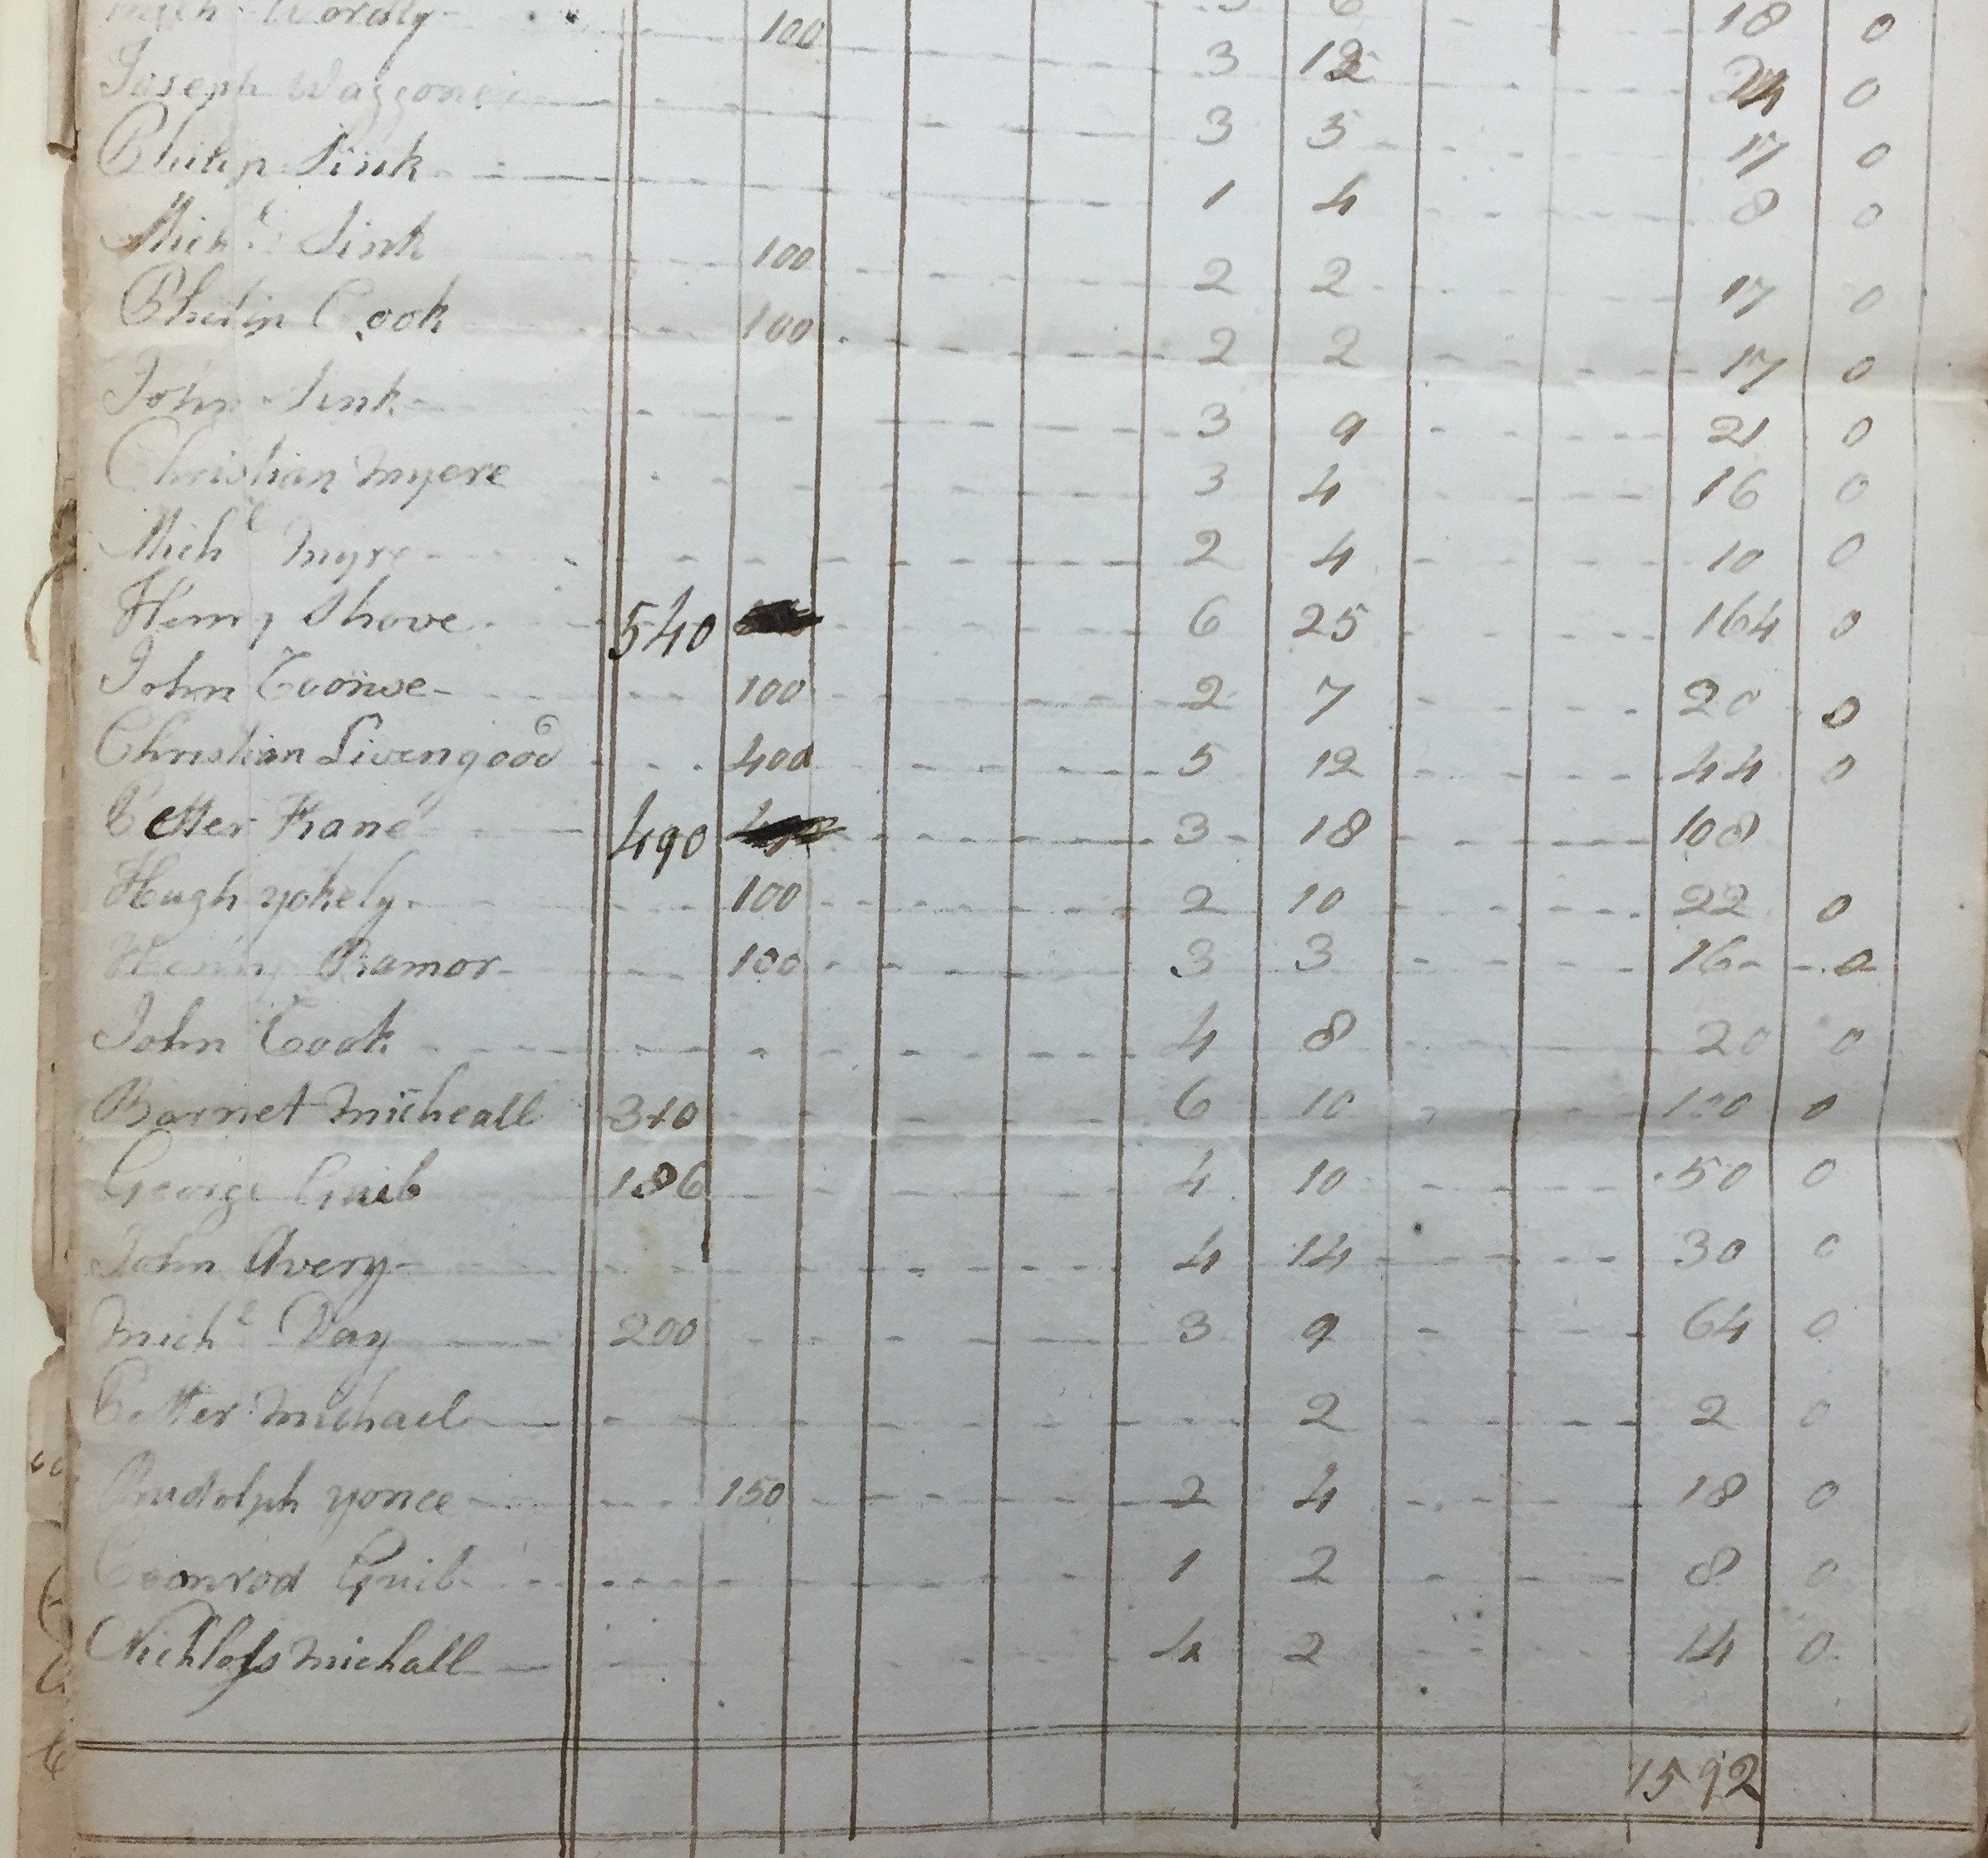 100 3 6 18 0
Joseph Waggoner 3 12 24 0
Philip Sink 3 5 17 0
Mich.l Sink 1 4 8 0
Philip Cook 100 2 2 17 0
John Sink 100 2 2 17 0
Christian Myere 3 9 21 0
Mich.l Myre 3 4 16 0
2 4 10 0
Henry Shove 540 6 25 164 0
John Coonse 100 2 7 20 0
Christian Livengood 400 5 12 44 0
Petter Frane 490 3 18 108
Hugh yokely 100 2 10 22 0
Henry Ramor 100 3 3 16 0
John Cook 4 8 20 0
Barnet Micheall 310 6 10 100 0
George Grub 186 4 10 50 0
John Avery 4 14 30 0
Mich.l Day 200 3 9 64 0
Petter Michael 2 2 0
Rudolph yonce 150 2 4 18 0
Coonrod Grub 1 2 8 0
Nichloss Michall 4 2 14 0
1592